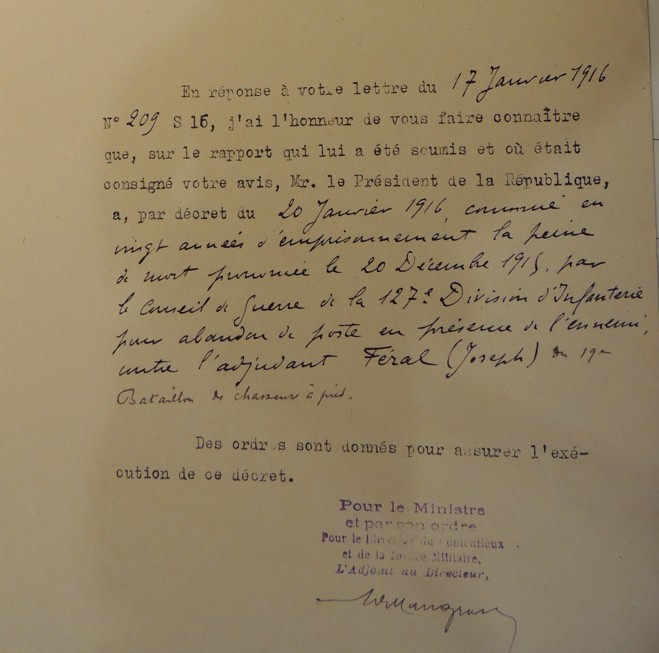 En réponse à votre lettre du 17 Janvier 1916
N° 209 S 16, j'ai l'honneur de vous faire connaître
que, sur le rapport qui lui a été soumis et où était
consigné votre avis, Mr. le Président de la République,
a, par décret du 20 Janvier 1916, commué en
vingt années d'emprisonnement la peine
de mort prononcée le 20 Décembre 1915, par
le Conseil de Guerre de la 127e Division d'Infanterie
pour abandon de poste en présence de l'ennemi,
contre l'adjudant Féral (Joseph) du 19e
Bataillon de chasseurs à pied.
Des ordres sont donnés pour assurer l'exé-
cution de ce décret.
Pour le Ministre
et par son ordre
Pour le Directeur du Contentieux
et de la Justice Militaire,
L'Adjoint au Directeur,